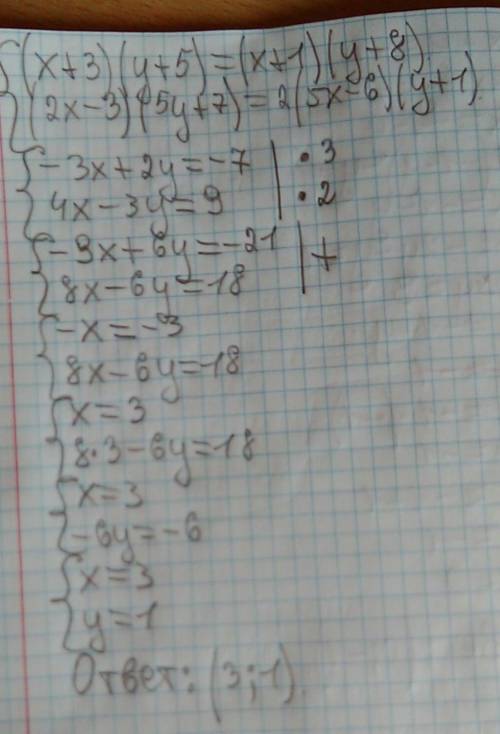 (x+3)(y+5)=(x+1)(y+8)
(2x-3)(5y+7)=2(5x-6)(y+1)
-3x+2y=-7 | · 3
4x-3y=9 | · 2
-9x+6y=-21 | +
8x-6y=18
-x=-3
8x-6y=18
x=3
8·3-6y=18
x=3
-6y=-6
x=3
y=1
Ответ: (3;1).